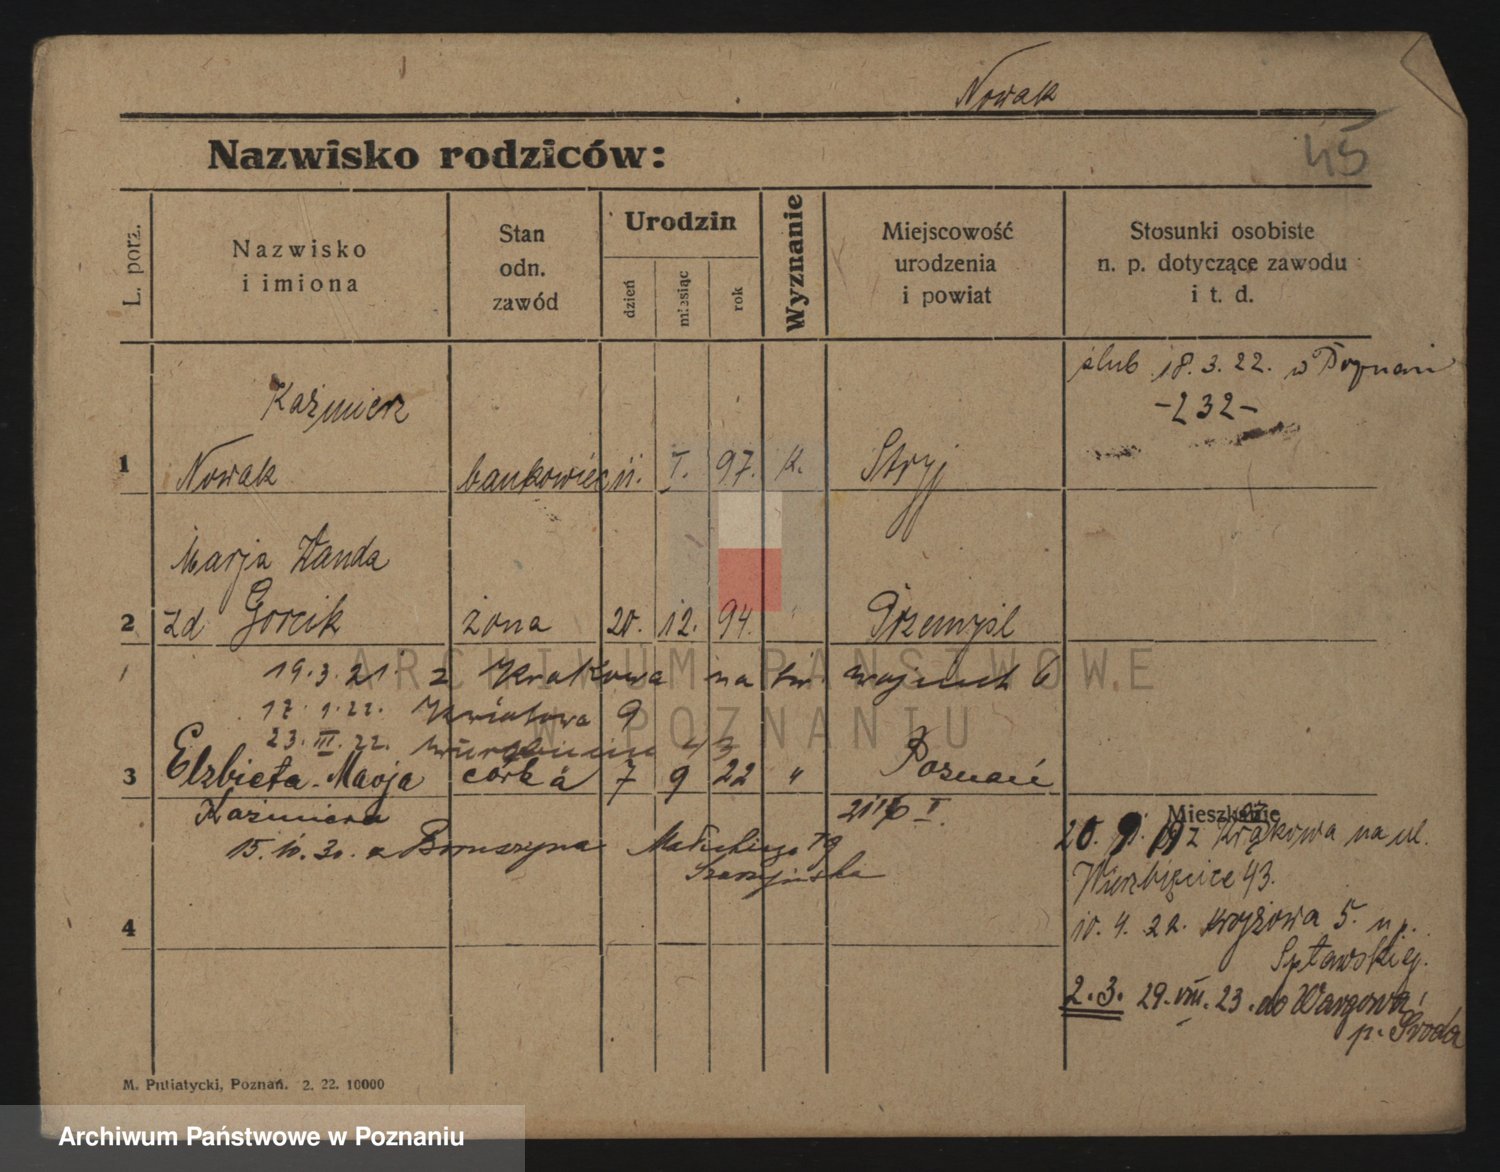 Nowak
45
Nazwisko rodziców:
L. porz.
Nazwisko
i imiona
Stan
odn.
zawód
Urodzin
dzień
miesiąc
rok
Wyznanie
Miejscowość
urodzenia
i powiat
Stosunki osobiste
n. p. dotyczące zawodu
i t. d.
ślub 18. 3. 22. w Poznani
-232-
Kaźmierz
1 Nowak bankowiec 11. I. 97. K. Stryj
Marja Wanda
2 zd Gorcik żona 20. 12. 94. " Przemyśl
19. 3. 21. z Krakowa na tw. 6
17. 1. 22. Kwiatowa 9
23. III. 22. 43
3 Elżbieta Marja córka 7 9 22 " Poznań
Kaźmiera
Mieszkanie
15. 10. 30. z Boruszyna 19
20. z Krakowa na ul.
Wierzbięcice 43.
4
10. 4. 22. 5. u p.
Spławskiej.
2. 3. 29. VIII. 23. do Wargowa,
p. Środa
M. Putiatycki, Poznań. 2. 22. 10000
ARCHIWUM PAŃSTWOWE
W POZNANIU
Archiwum Państwowe w Poznaniu